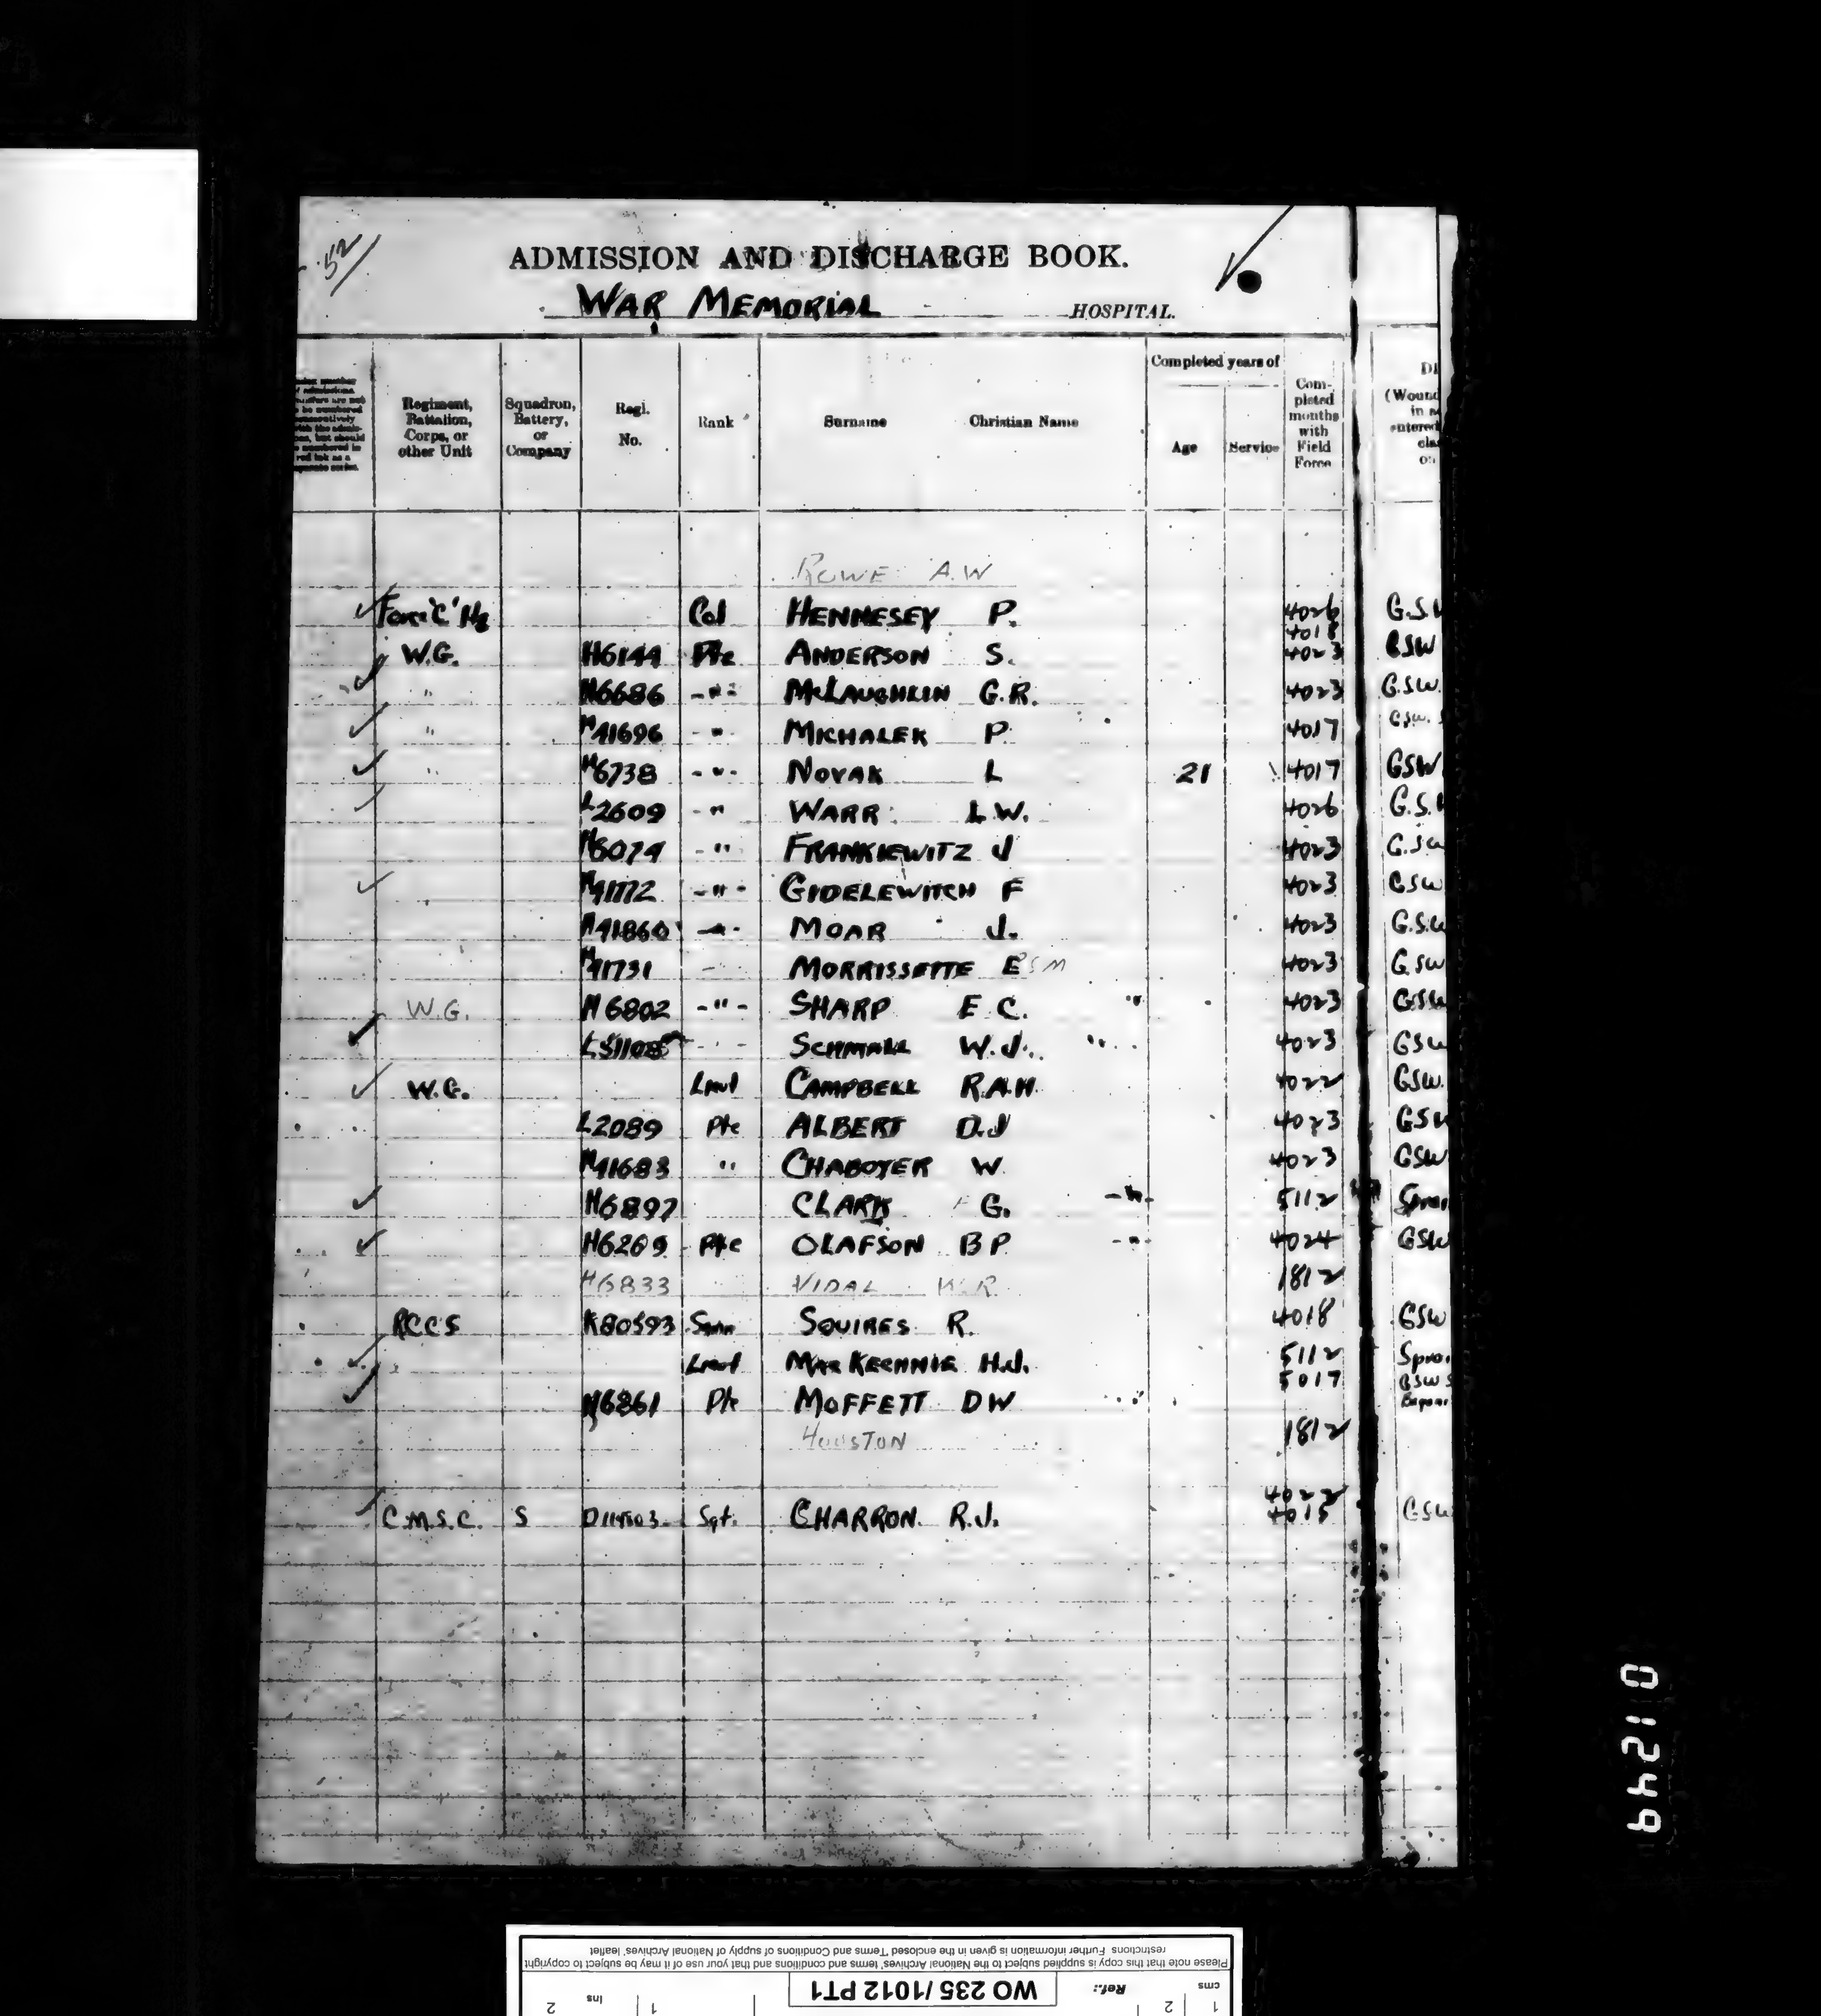 52
ADMISSION AND DISCHARGE BOOK.
WAR MEMORIAL HOSPITAL.
Regiment, Battalion, Corps, or other Unit
Squadron, Battery, or Company
Regl. No.
Rank
Surname Christian Name
Completed years of
Age Service
Completed months with Field Force
ROWE A.W
Force 'C' Hq Col HENNESEY P. 4026 G.S.
4018
W.G. H6144 Pte ANDERSON S. 4023 GSW
" H6686 -"- McLAUGHLIN G.R. 4023 G.S.W.
" H41696 -"- MICHALEK P. 4017 GSW.
" H6738 -"- NOVAK L 21 4017 GSW
L2609 -" WARR L.W. 4026 G.S.
H6074 -" FRANKIEWITZ J 4023 G.S.W
H41772 -"- GIDELEWITCH F 4023 GSW
H41860 -"- MOAR J. 4023 G.S.W
H41731 - MORRISSETTE E S M 4023 G.SW
W.G. H6802 -"- SHARP E.C. " 4023 GSW
SCHMALL W.J. 4023 GSW
W.G. Lieut CAMPBELL R.A.H. 4022 GSW.
L2089 Pte ALBERT D.J 4023 GSW
H41683 " CHABOYER W. 4023 GSW
H6897 CLARK G. -"- 5112 Sprai
H6269 Pte OLAFSON B P -"- 4024 GSW
H6833 VIDAL W.R. 1812
RCCS K80593 SQUIRES R. 4018 GSW
Lieut MacKECHNIE H.J. 5112 Sprai
5017 GSW
H6861 Pte MOFFETT D W
HOUSTON 1812
4022
C.M.S.C. S Sgt. CHARRON R.J. 4015 GSW
01249
Please note that this copy is supplied subject to the National Archives' terms and conditions and that your use of it may be subject to copyright
restrictions Further information is given in the enclosed 'Terms and Conditions of supply of National Archives' leaflet
cms 1 2 Ref.: WO 235/1012 PT1
ins 1 2